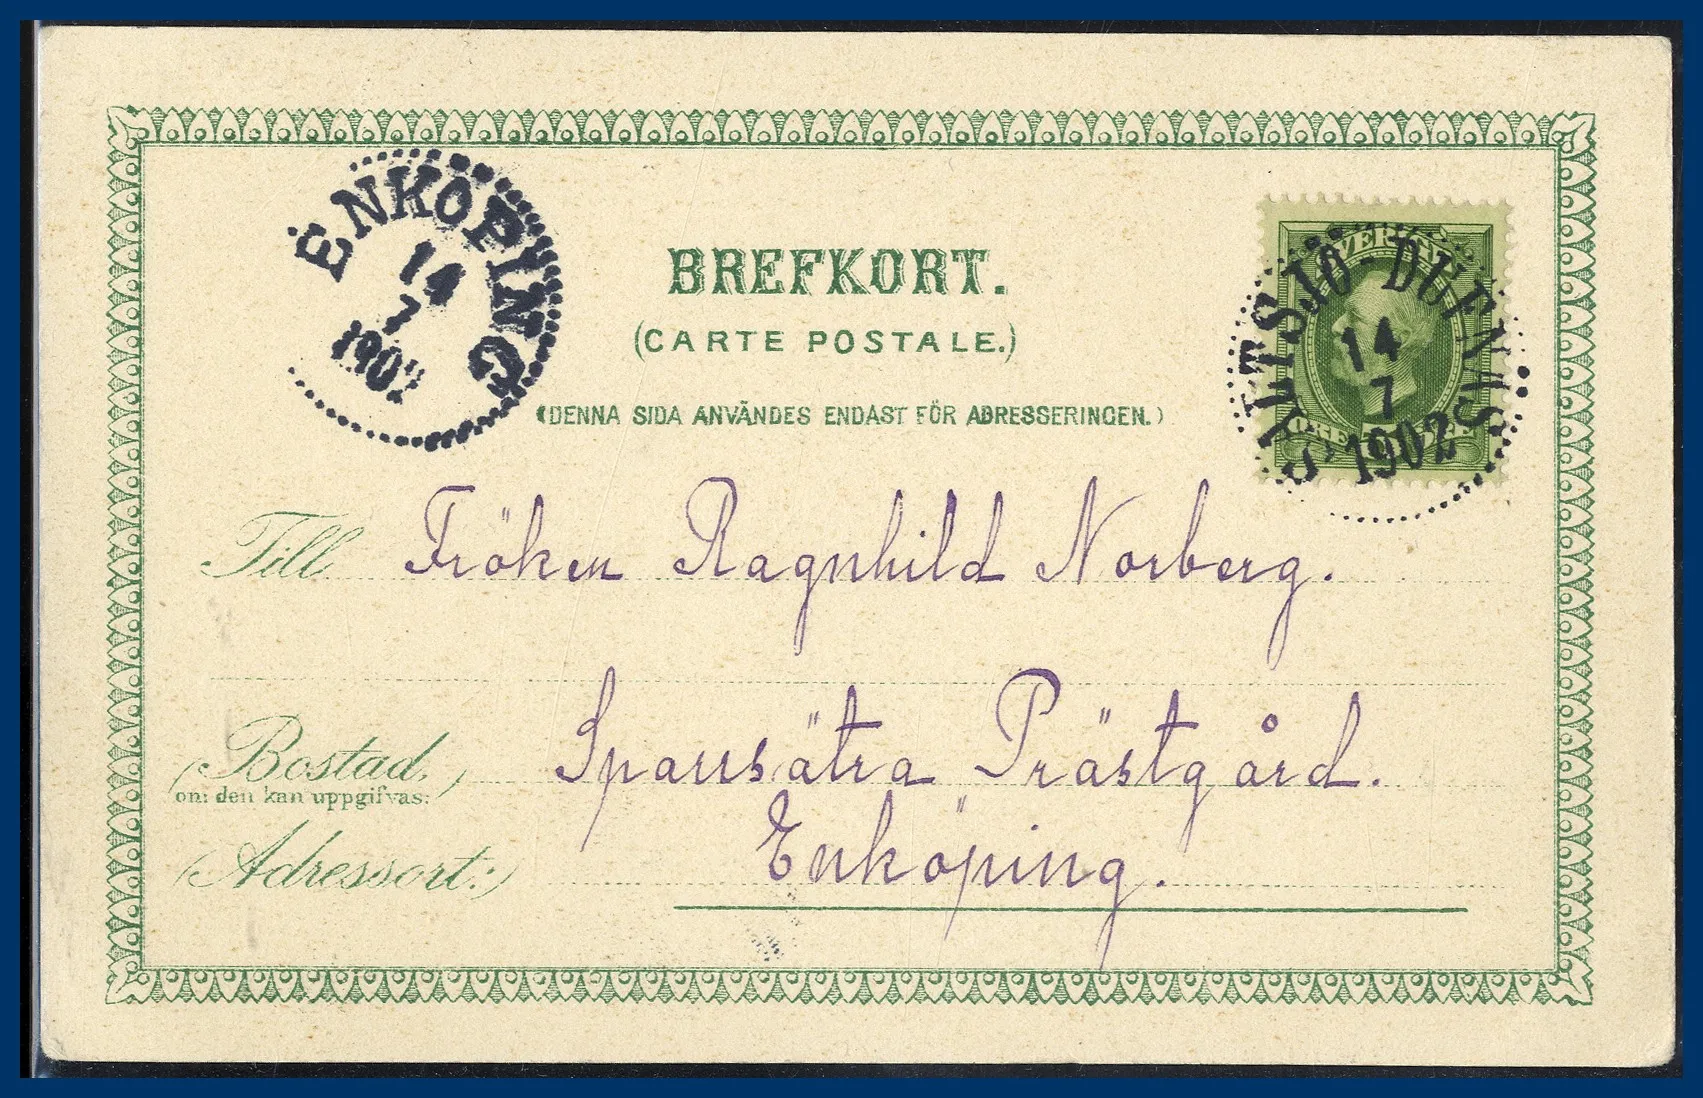 ENKÖPING
14
7
1902
BREFKORT.
(CARTE POSTALE.)
(DENNA SIDA ANVÄNDES ENDAST FÖR ADRESSERINGEN.)
SVERIGE
SALTSJÖ-DUFNÄS
14
7
1902
Till Fröken Ragnhild Norberg.
(Bostad, ) Sparrsätra Prästgård.
om den kan uppgifvas:
(Adressort:) Enköping.